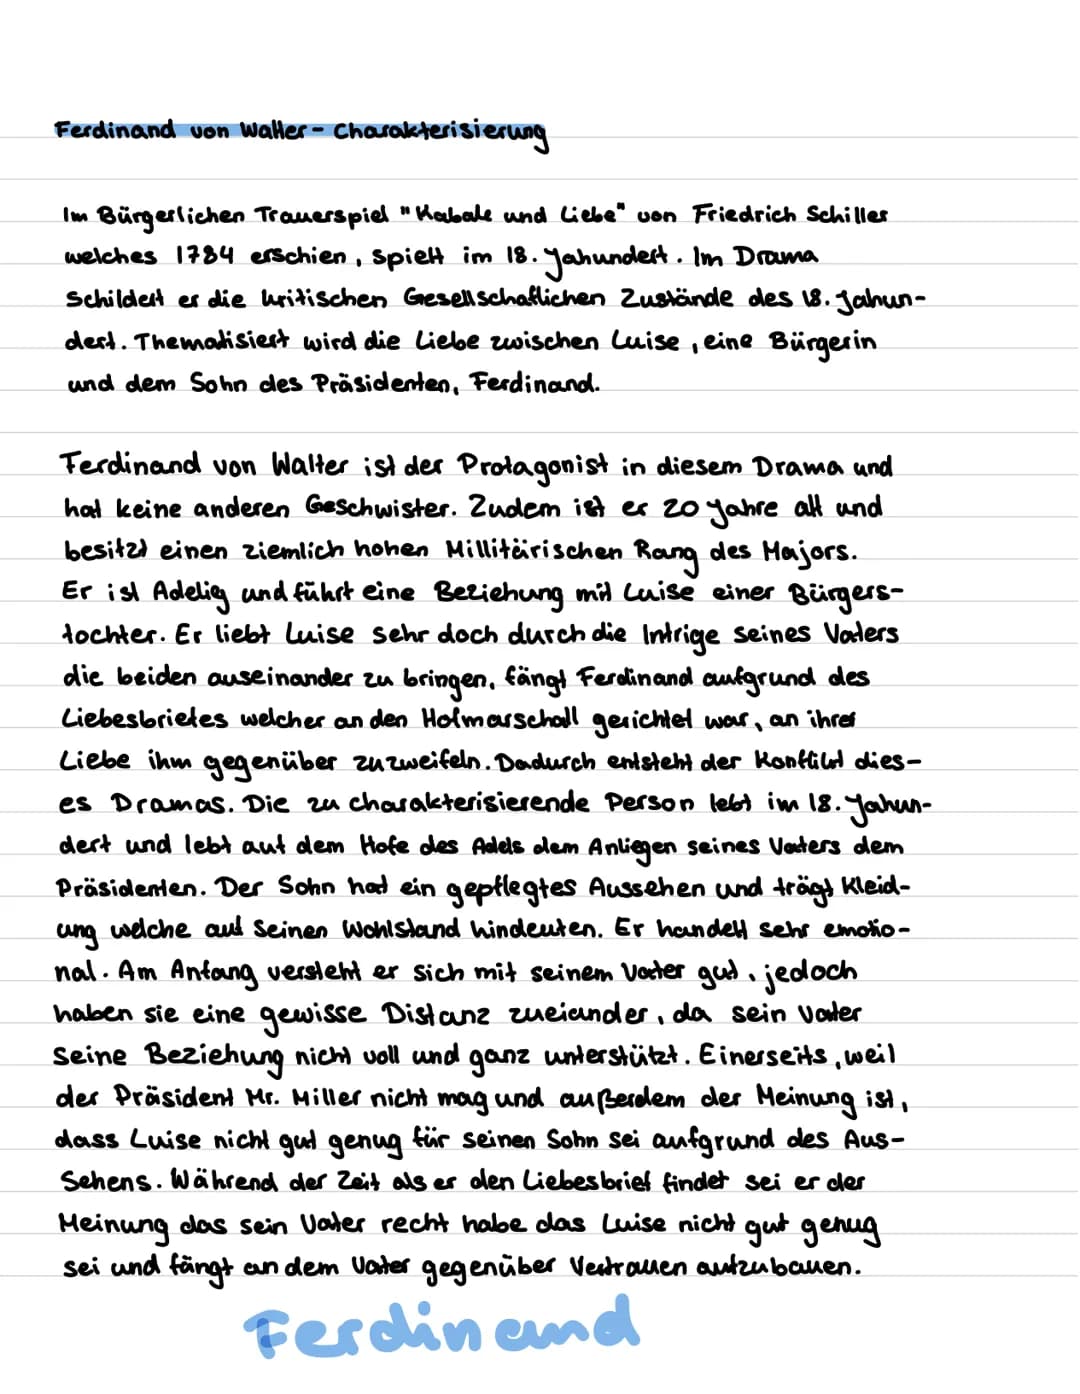 Ferdinand von Walter - Charakterisierung
Im Bürgerlichen Trauerspiel "Kabale und Liebe" von Friedrich Schiller
welches 1784 erschien, spielt im 18. Yahundert. Im Drama
schildert er die kritischen Gesellschaftlichen Zustände des 18. Jahun-
dert. Thematisiert wird die Liebe zwischen Luise, eine Bürgerin
und dem Sohn des Präsidenten, Ferdinand.
Ferdinand von Walter ist der Protagonist in diesem Drama und
hat keine anderen Geschwister. Zudem ist er 20 Yahre alt und
besitzt einen ziemlich hohen Millitärischen Rang des Majors.
Er ist Adelig und führt eine Beziehung mit Luise einer Bürgers-
tochter. Er liebt Luise sehr doch durch die Intrige seines Vaters
die beiden auseinander zu bringen, fängt Ferdinand aufgrund des
Liebesbriefes welcher an den Hofmarschall gerichtet war, an ihrer
Liebe ihm gegenüber zuzweifeln. Dadurch entsteht der Konflikt dies-
es Dramas. Die zu charakterisierende Person lebt im 18. Yahun-
dert und lebt auf dem Hofe des Adels dem Anliegen seines Vaters dem
Präsidenten. Der Sohn hat ein gepflegtes Aussehen und trägt Kleid-
ung welche auf seinen Wohlstand hindeuten. Er handelt sehr emotio-
nal. Am Anfang versteht er sich mit seinem Vater gut, jedoch
haben sie eine gewisse Distanz zueiander, da sein Vater
seine Beziehung nicht voll und ganz unterstützt. Einerseits, weil
der Präsident Mr. Miller nicht mag und außerdem der Meinung ist,
dass Luise nicht gut genug für seinen Sohn sei aufgrund des Aus-
sehens. Während der Zeit als er den Liebesbrief findet sei er der
Meinung das sein Vater recht habe das Luise nicht gut genug
sei und fängt an dem Vater gegenüber Vertrauen aufzubauen.
Ferdinand